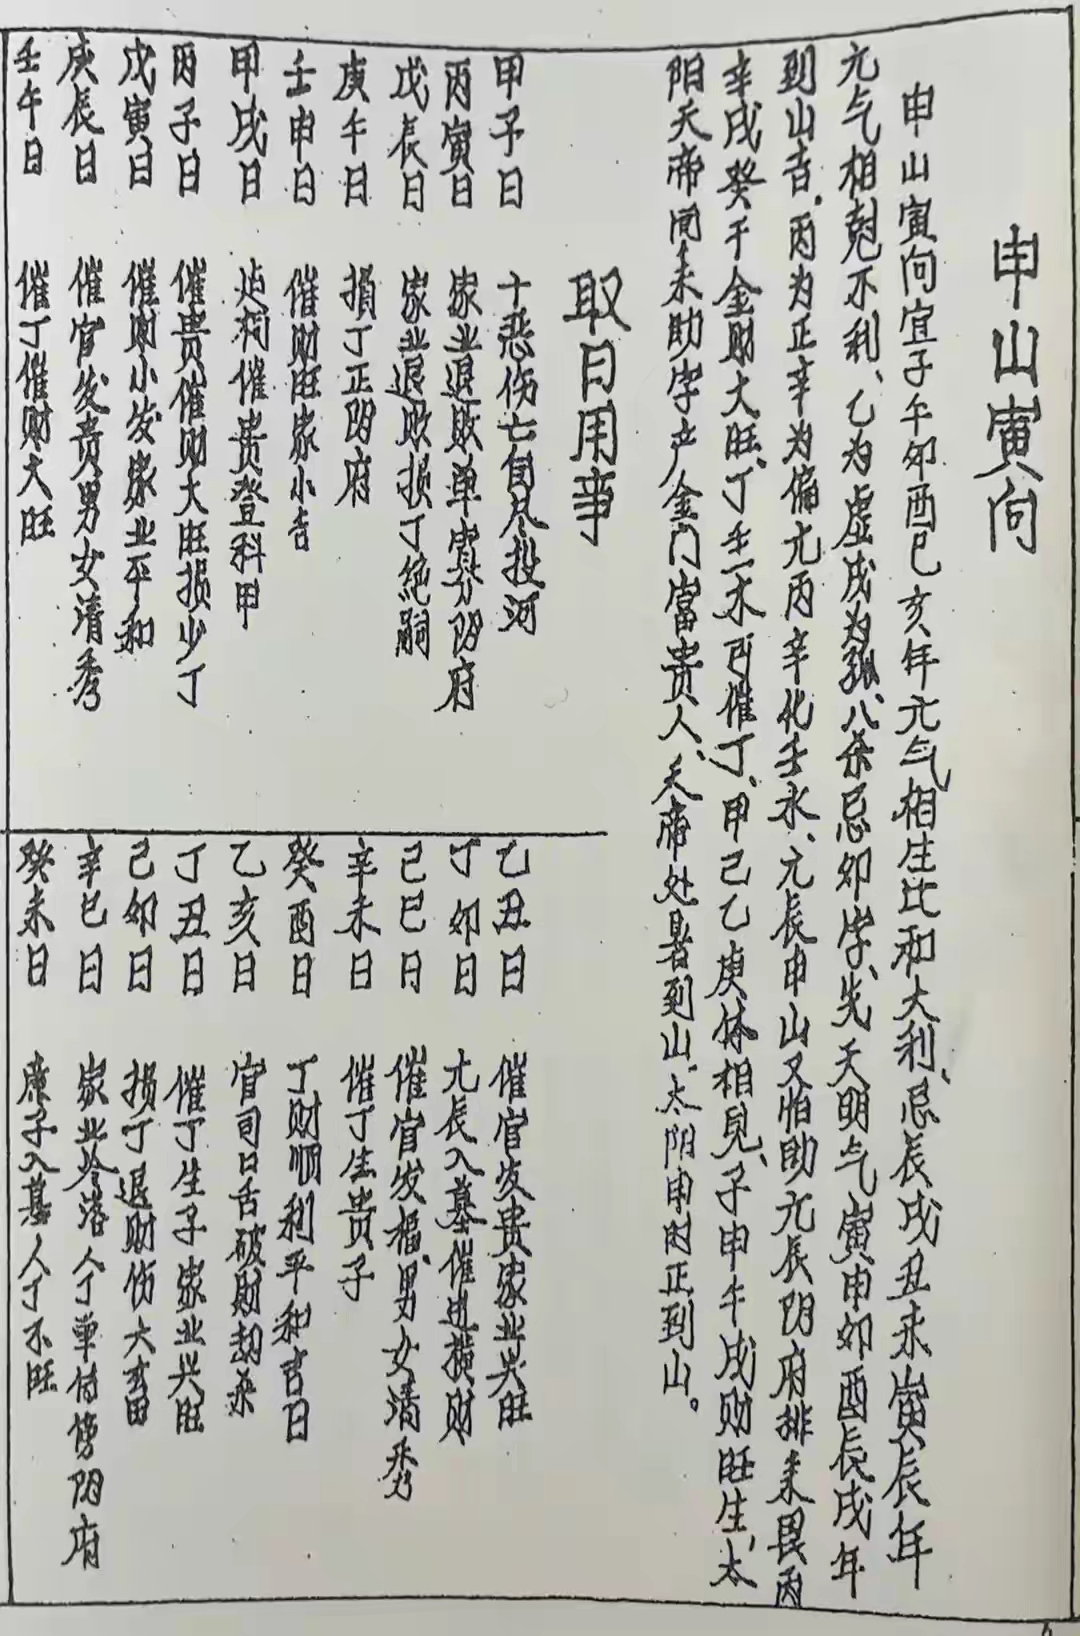 申山寅向
申山寅向宜子午卯酉巳亥年元气相生比和大利、忌辰戌丑未寅辰年
元气相尅不利、乙为虚戌为孤、八杀忌卯字、先天明气寅申卯酉辰戌年
到山吉。丙为正辛为偏尤丙辛化壬水、元辰申山又怕助元辰阴府排来畏丙
辛戌癸干金财大旺、丁壬木可催丁、甲己乙庚体相見、子申午戌财旺生、太
阳天帝同来助字产金门富贵人、天帝处暑到山、太阳申时正到山。
取日用事
甲子日 十恶伤亡自尽投河
乙丑日 催官发贵家业兴旺
丙寅日 家业退败单寡阴府
丁卯日 尤辰入墓催进横财
戊辰日 家业退败损丁绝嗣
己巳日 催官发福、男女清秀
庚午日 損丁正阴府
辛未日 催丁生贵子
壬申日 催财旺家小吉
癸酉日 丁财顺利平和吉日
甲戌日 催贵登科甲
乙亥日 官司口舌破财劫杀
丙子日 催贵催财大旺损少丁
丁丑日 催丁生子家业兴旺
戊寅日 催财小发家业平和
己卯日 损丁退财伤六畜
庚辰日 催官发贵男女清秀
辛巳日 家业冷落人丁单传傍阴府
壬午日 催丁催财大旺
癸未日 庶子入墓人丁不旺